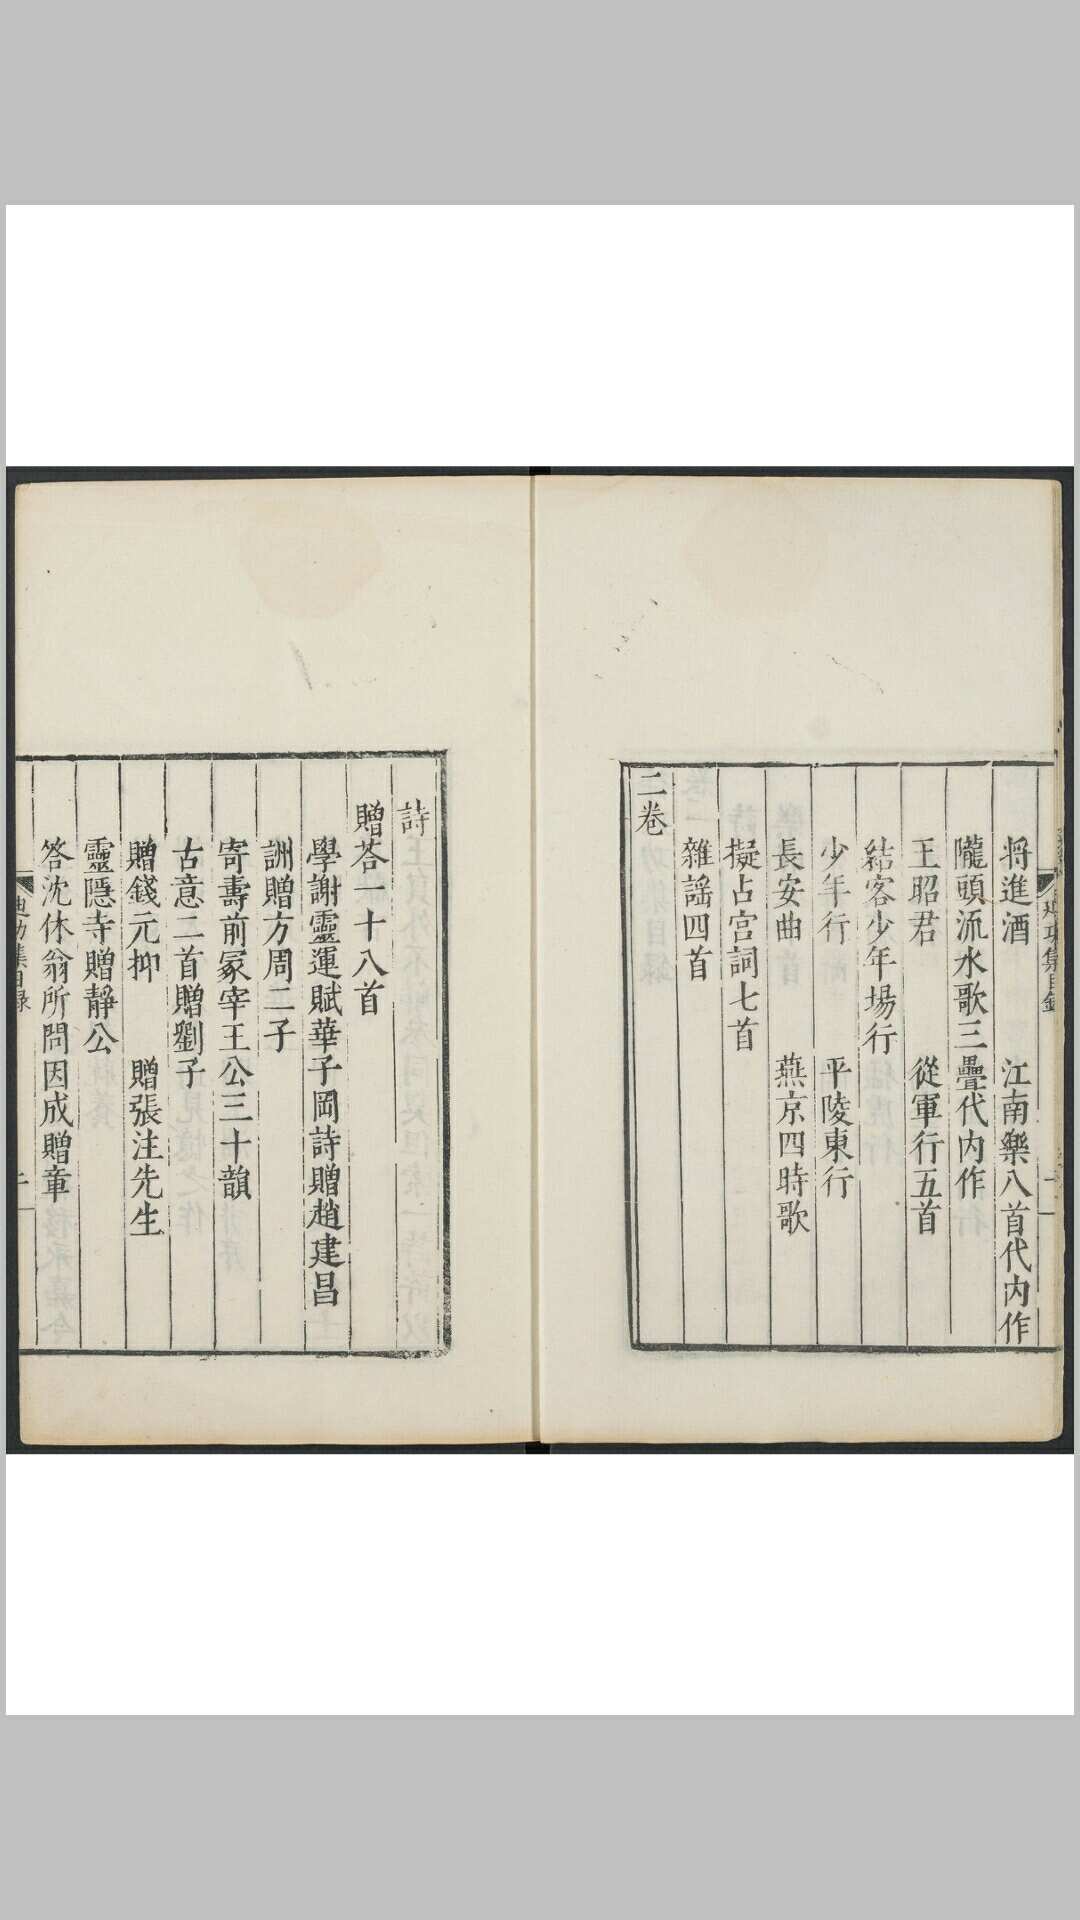 將進酒 江南樂八首代內作
隴頭流水歌三疊代內作
王昭君 從軍行五首
結客少年場行
少年行 平陵東行
長安曲 燕京四時歌
擬占宮詞七首
雜謠四首
二卷
詩
贈荅一十八首
學謝靈運賦華子岡詩贈趙建昌
詶贈方周二子
寄壽前冢宰王公三十韻
古意二首贈劉子
贈錢元抑 贈張注先生
靈隱寺贈靜公
答沈休翁所問因成贈章
迪功集目録